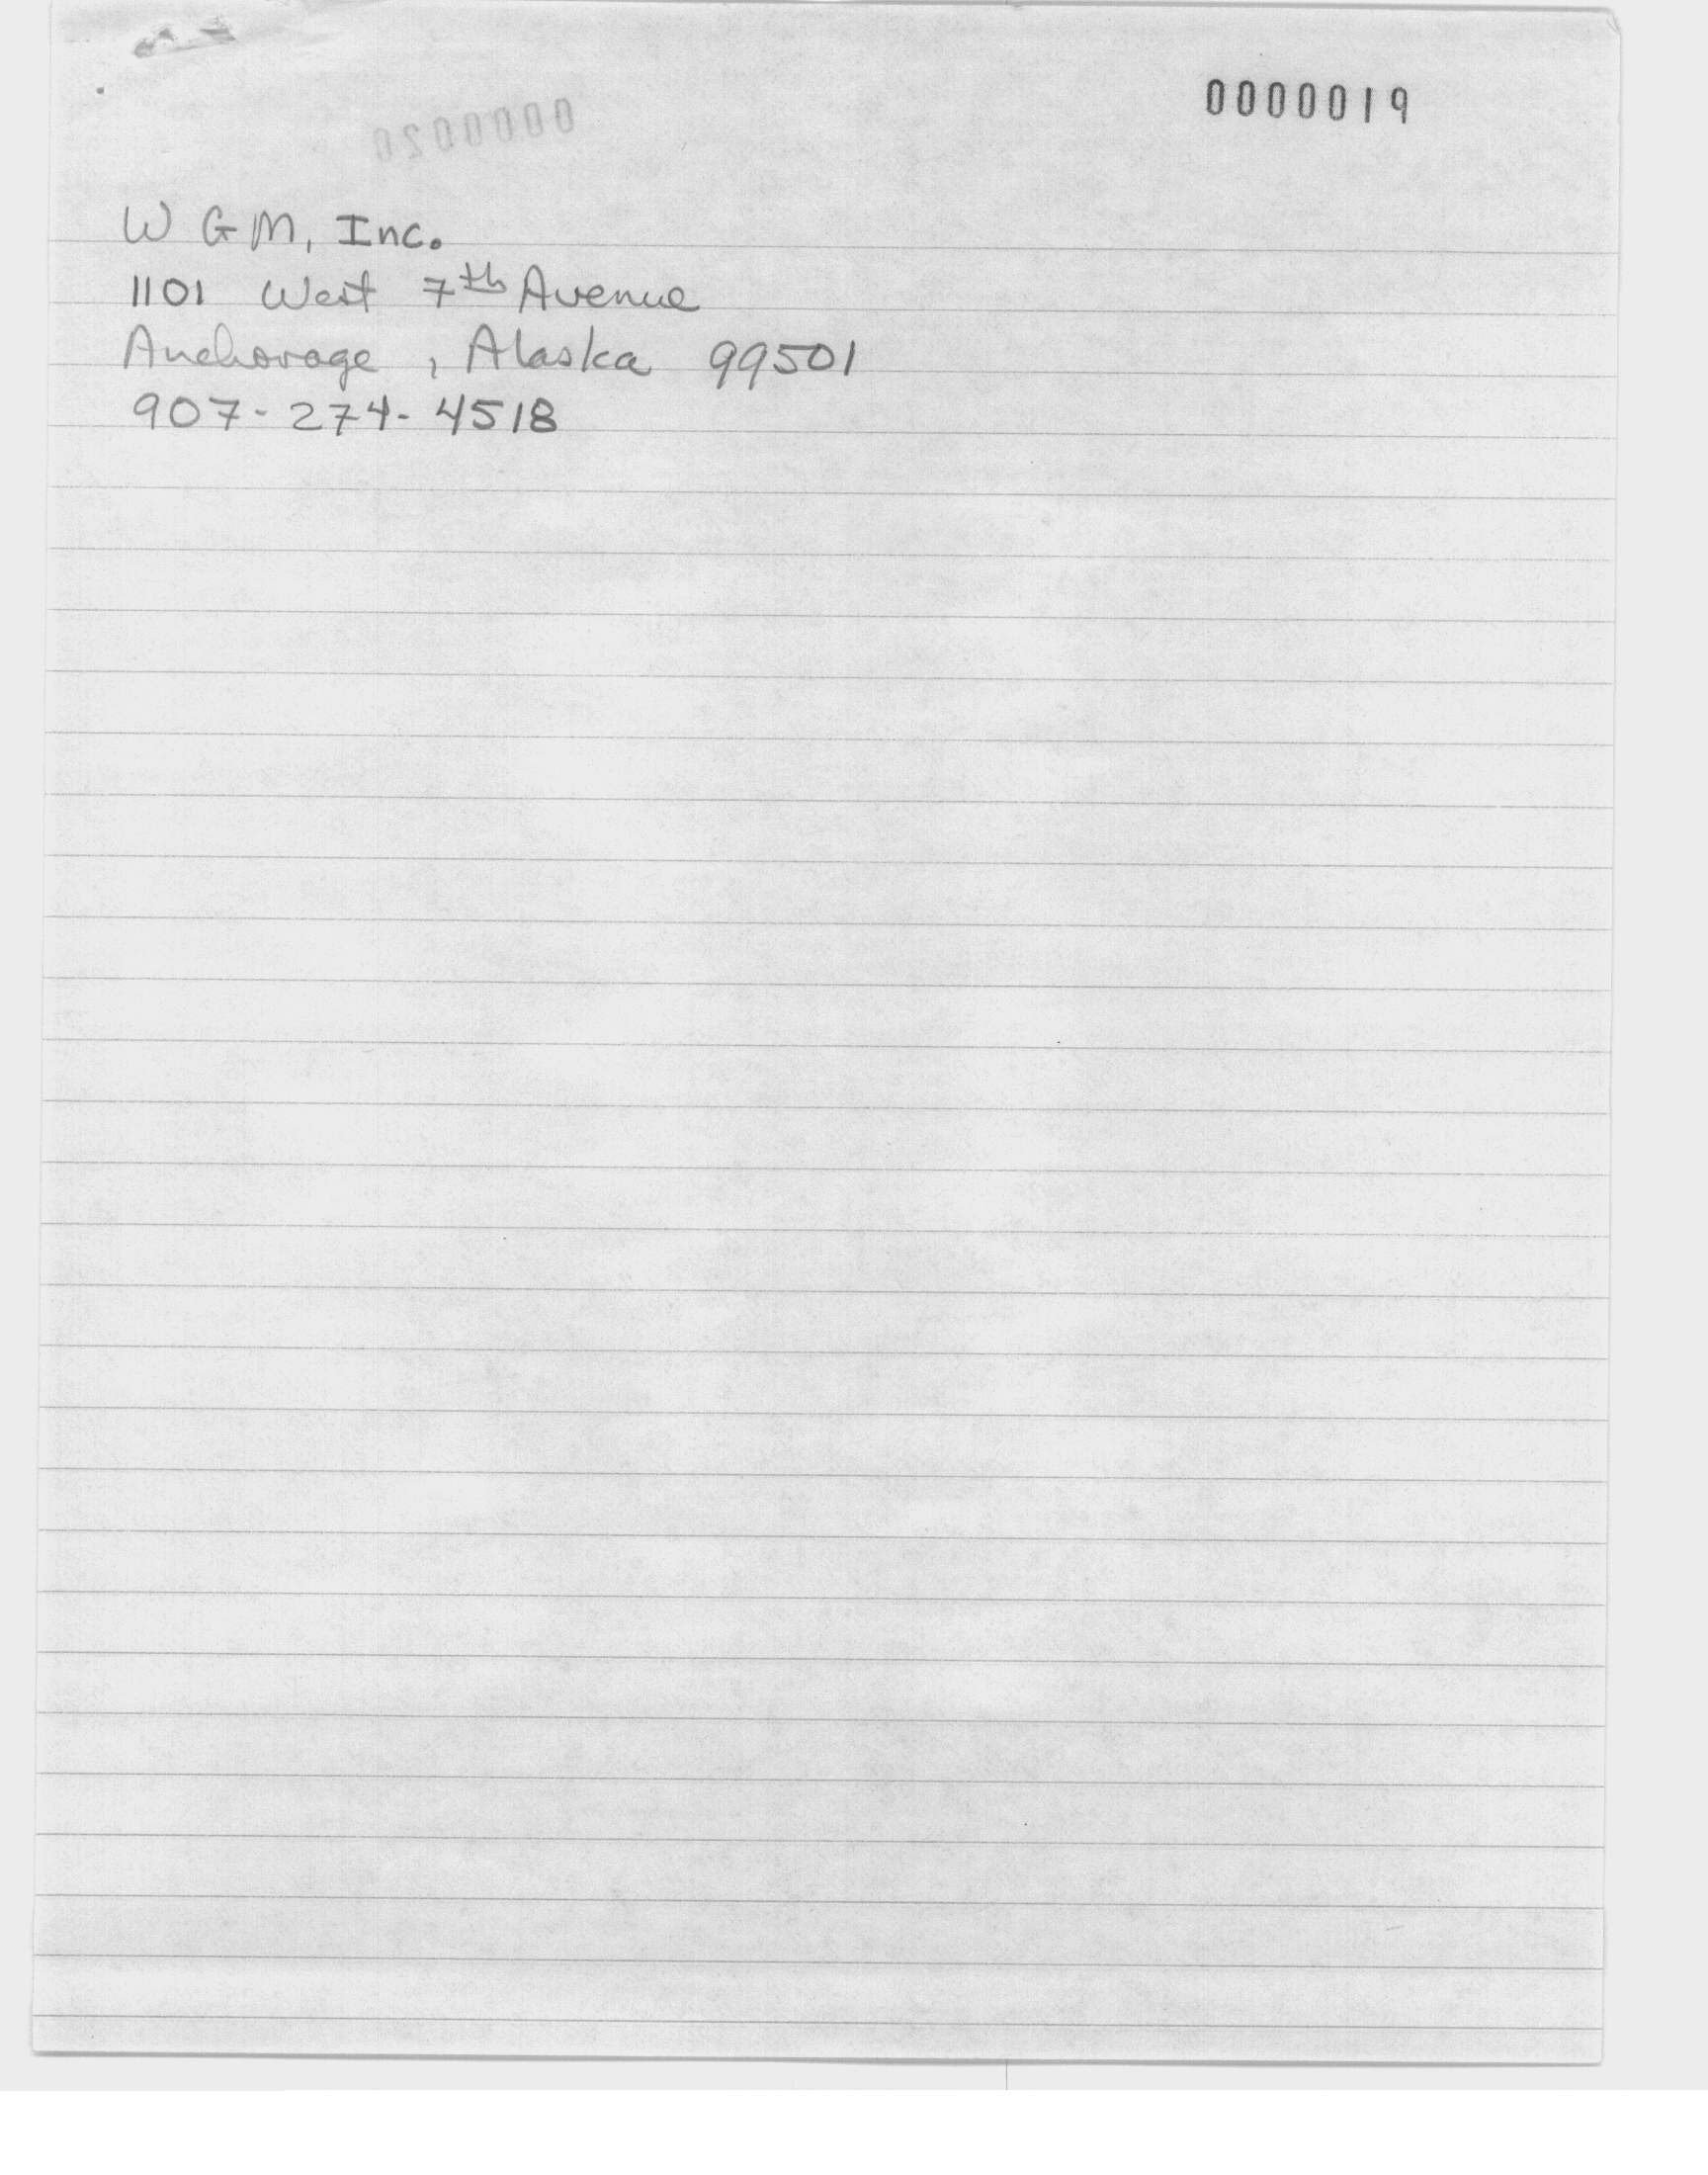 0000019
0000020
W GM, Inc.
1101 West 7th Avenue
Anchorage, Alaska 99501
907-274-4518